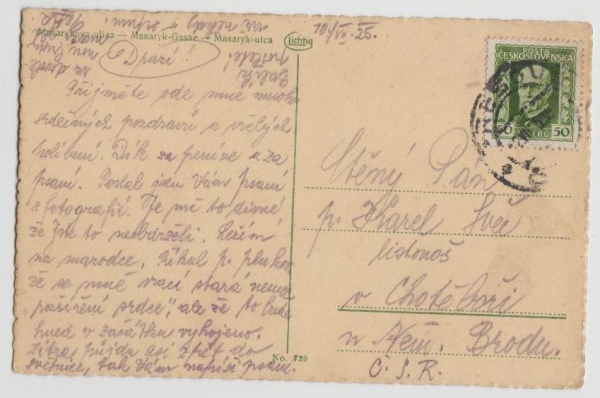 Masarykova ulica — Masaryk-Gasse — Masaryk-utca
Lichtig
10./VII. 25.
Drazí!
Přijměte ode mne mnoho
srdečných pozdravů a vřelých
políbení. Dík za peníze a za
psaní. Poslal jsem Vám psaní
s fotografií. Je mi to divné
že jste to neobdrželi. Ležím
na marodce. Říkal p. plukov.
že se mně vrací stará nemoc
"rozšíření srdce", ale že to bude
hned v začátku vyhojeno.
Zítra půjdu asi zpět do
světnice, tak Vám napíši psaní.
No. 129
POŠTA
ČESKOSLOVENSKÁ
50
50
Ctěný Pán
p. Karel
listonoš
v Chotěboři
u Něm. Brodu.
Č. S. R.